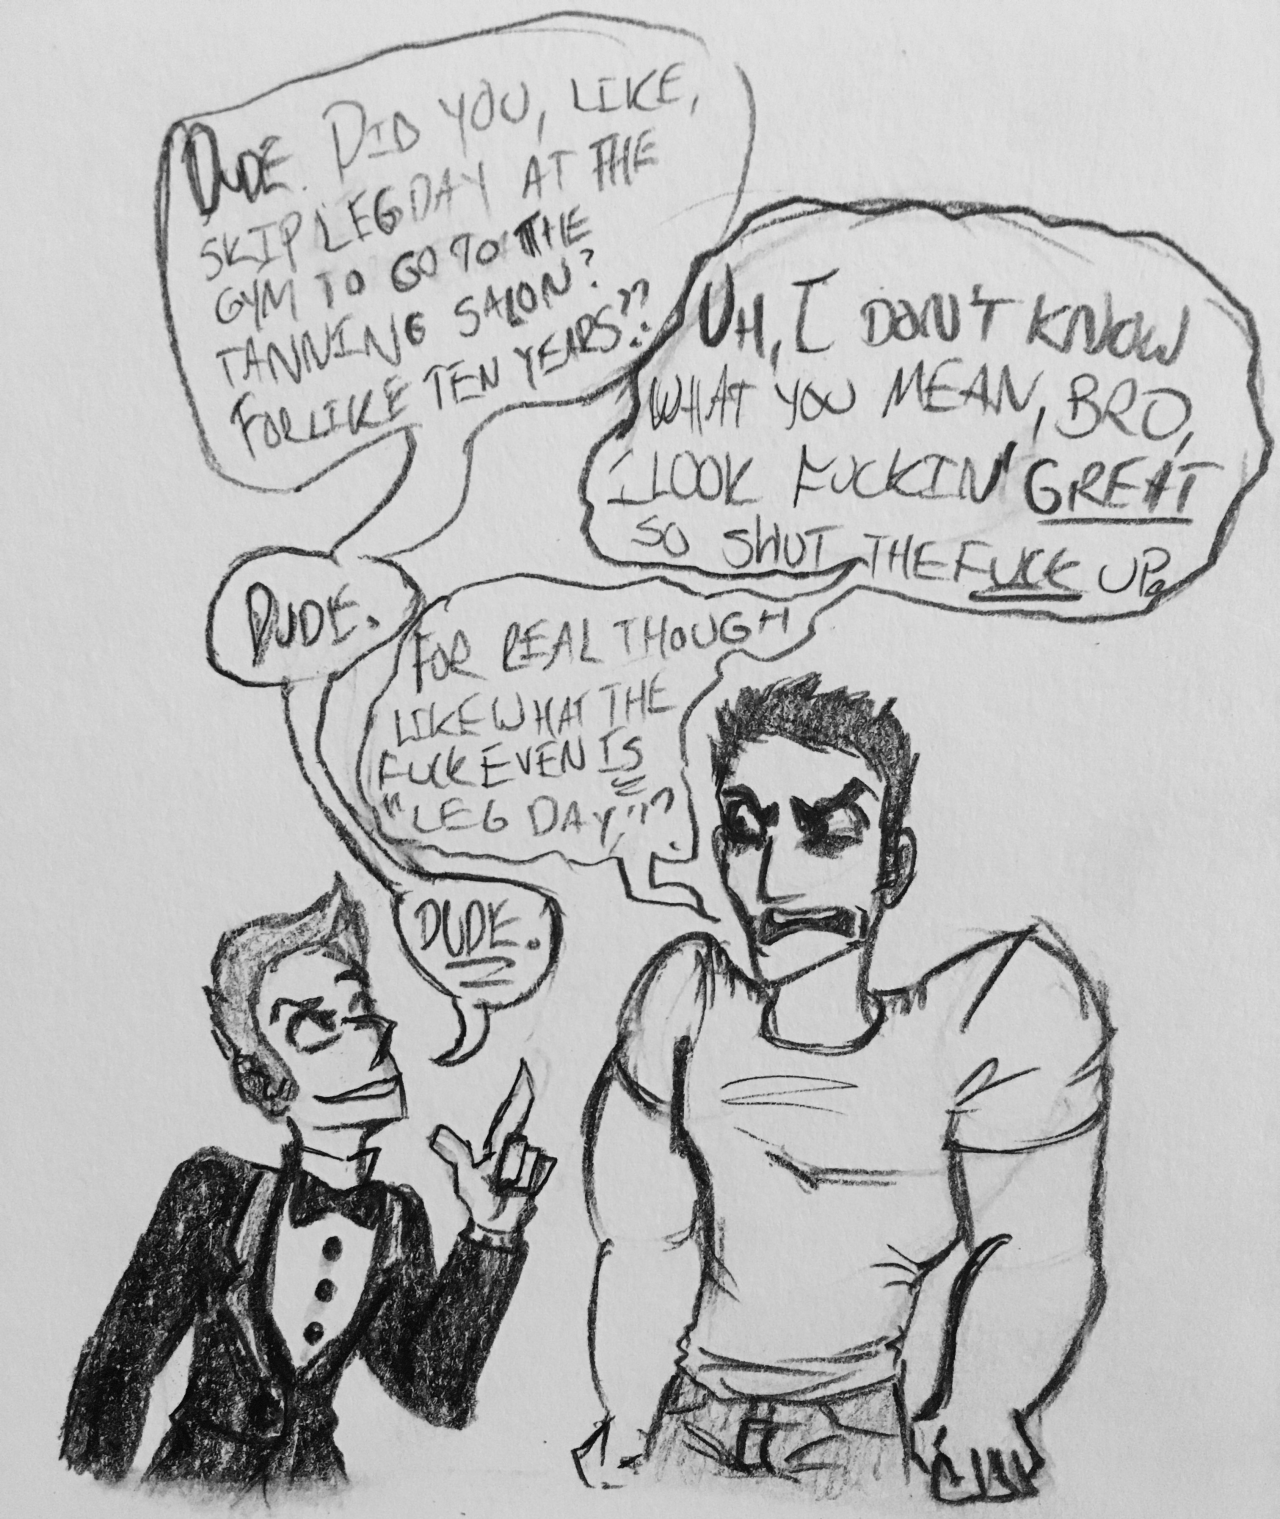 DUDE. DID YOU, LIKE,
SKIP LEG DAY AT THE
GYM TO GO TO THE
TANNING SALON?
FOR LIKE TEN YEARS??
UH, I DON'T KNOW
WHAT YOU MEAN, BRO,
I LOOK FUCKIN' GREAT
SO SHUT THE FUCK UP.
DUDE.
FOR REAL THOUGH
LIKE WHAT THE
FUCK EVEN IS
"LEG DAY,"?
DUDE.